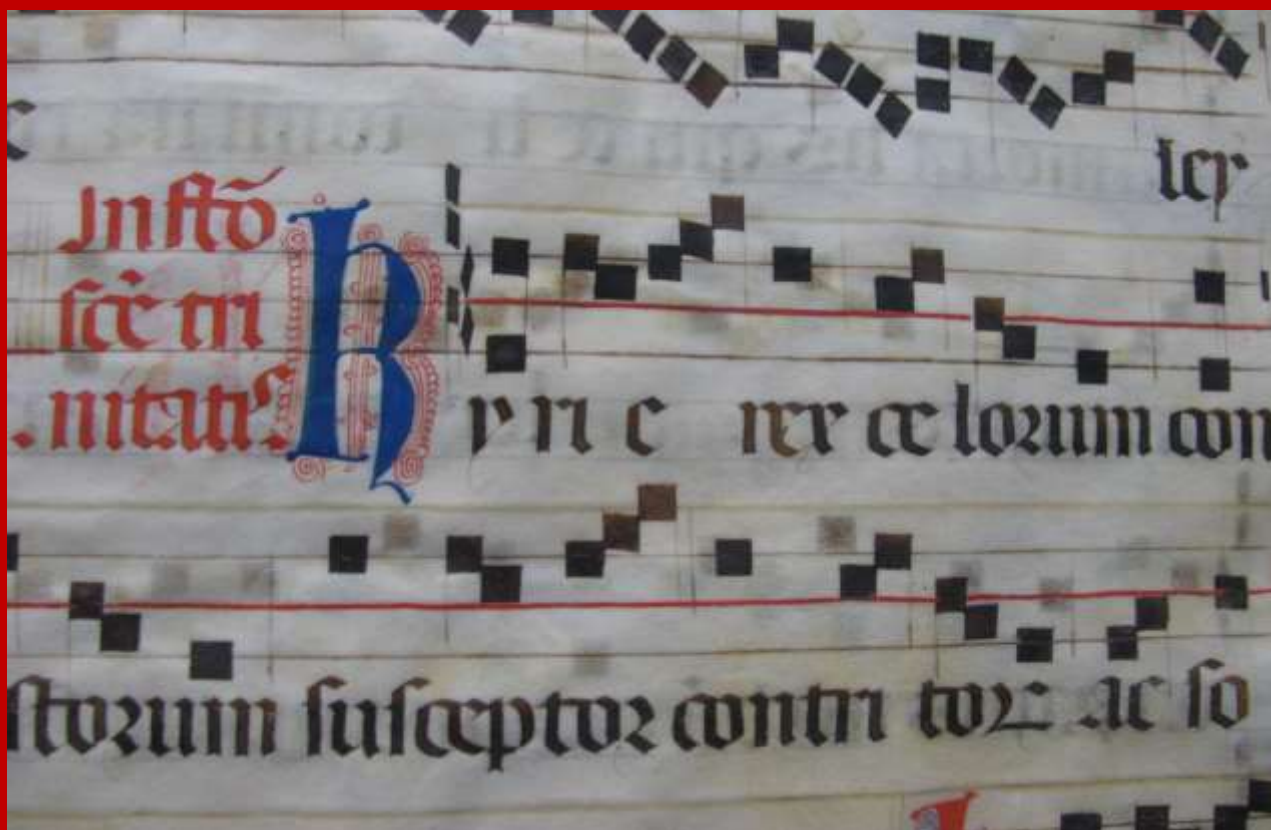 ley
In festo
sce tri
nitatis
Kyri e rex ce lorum con
storum susceptor contri tor ac so